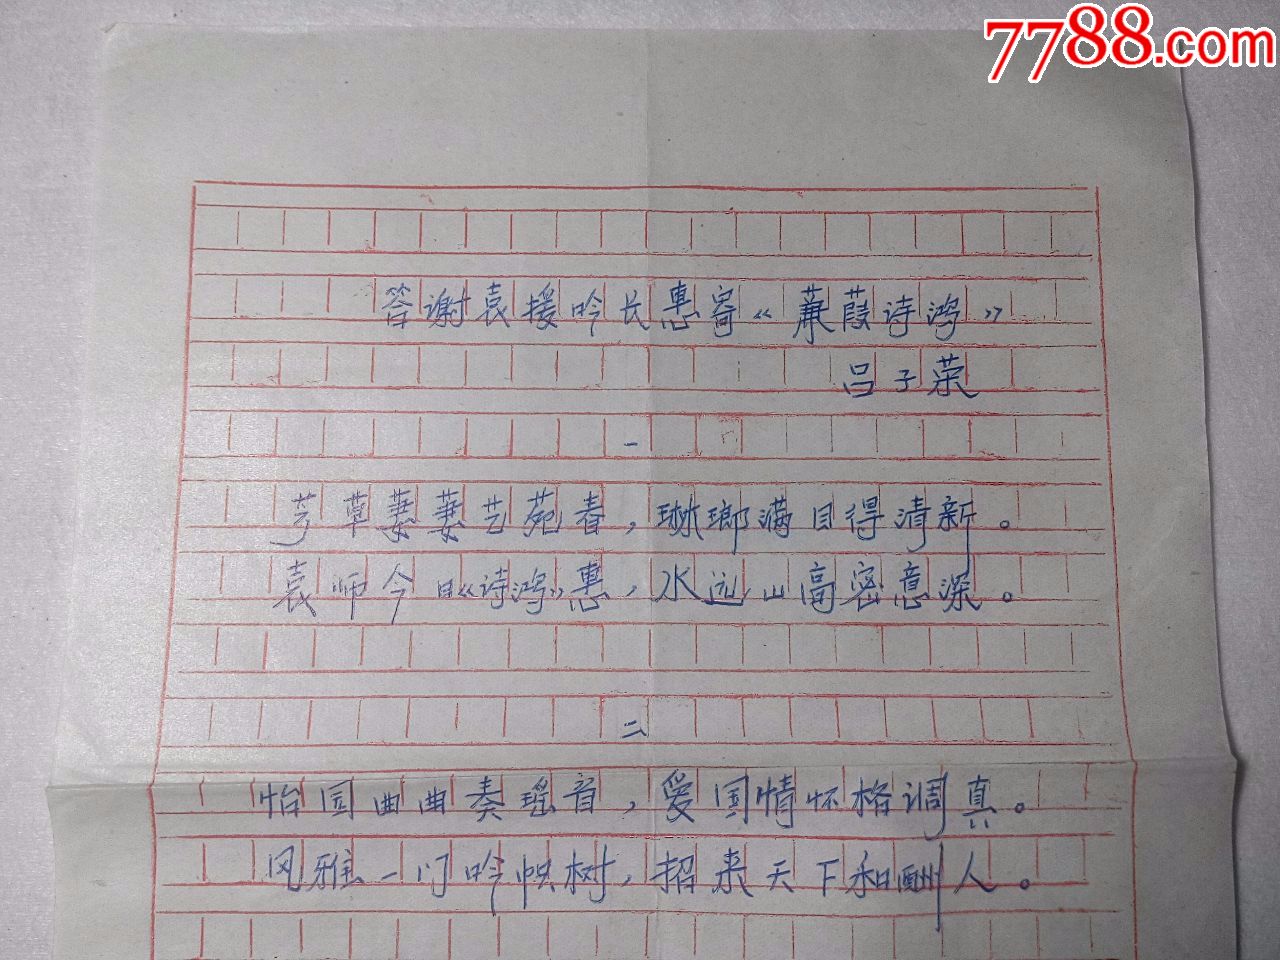 7788.com
答谢袁援吟长惠寄《蒹葭诗鸿》
吕子荣
一
芳草萋萋艺苑春，琳瑯满目得清新。
袁师今日《诗鸿》惠，水远山高密意深。
二
怡园曲曲奏瑶音，爱国情怀格调真。
风雅一门吟帜树，招来天下和酬人。